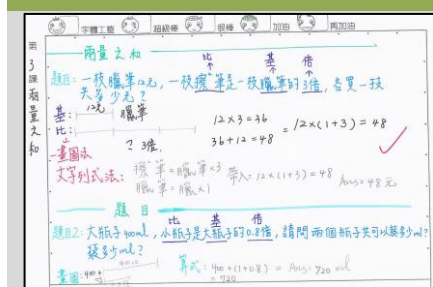 字體工整 超級棒 很棒 加油 再加油
第3課兩量之和
兩量之和
比 基 倍
題目1:一枝臘筆12元,一枝擦筆是一枝臘筆的3倍,各買一枝
共多少元?
基: 12元 臘筆
比: ? 3倍
12×3=36
36+12=48
=12×(1+3)=48
畫圖法
文字列式法:
擦筆=臘筆×3
臘筆=臘筆×1
帶入=12×(1+3)=48
Ans=48元
題目
比 基 倍
題目2:大瓶子400ml,小瓶子是大瓶子的0.8倍,請問兩個瓶子共可以裝多少ml?
畫圖:
算式:400+(1+0.8)= Ans:720ml
=720